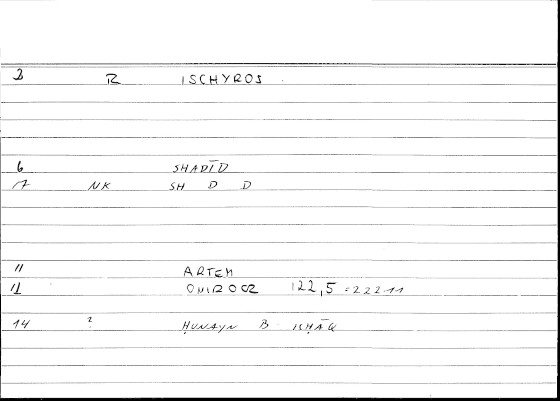 3 R ISCHYROS
6 SHADĪD
7 NK SH D D
11 ARTEM
12 ONIROCR 122,5 = 222.11
14 ? ḤUNAYN B. ISḤĀQ